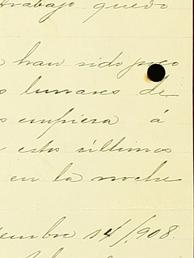 trabajo, quedo
han sido poco
s lunares de
s empieza á
estos últimos
en la noche
iembre 14/908.